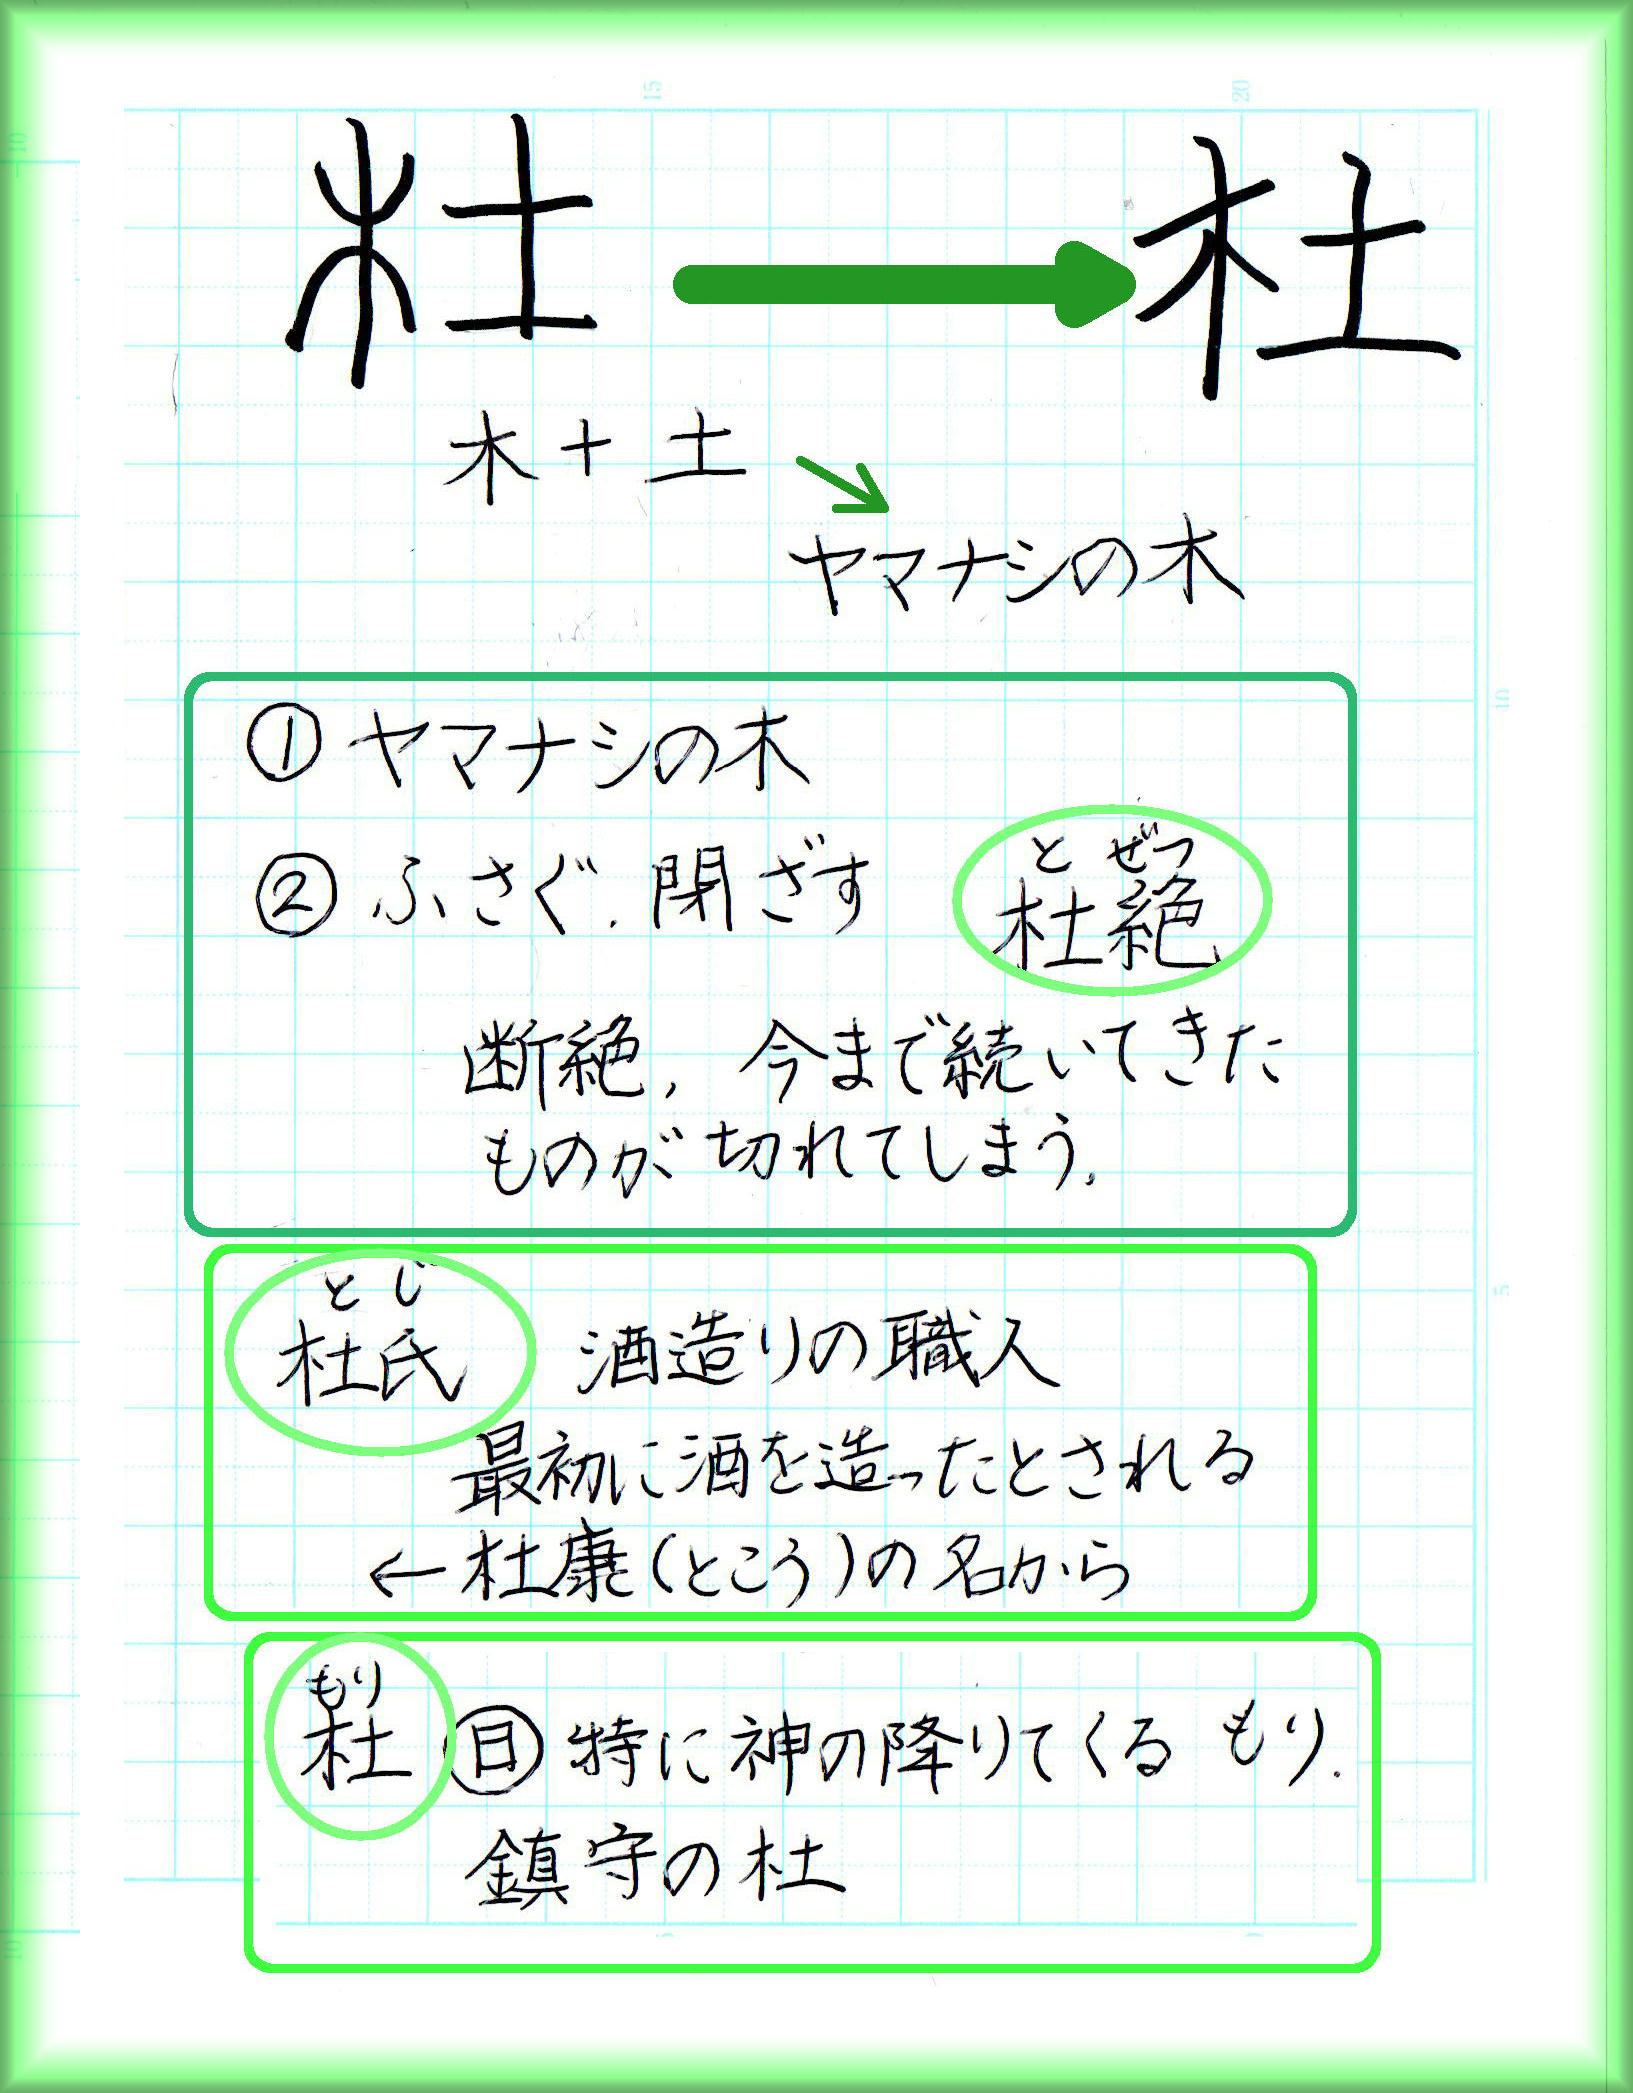 杜 杜
木+土
ヤマナシの木
①ヤマナシの木
②ふさぐ.閉ざす
とぜつ
杜絶
断絶, 今まで続いてきた
ものが切れてしまう.
とじ
杜氏 酒造りの職人
最初に酒を造ったとされる
←杜康(とこう)の名から
もり
杜 日 特に神の降りてくる もり.
鎮守の杜